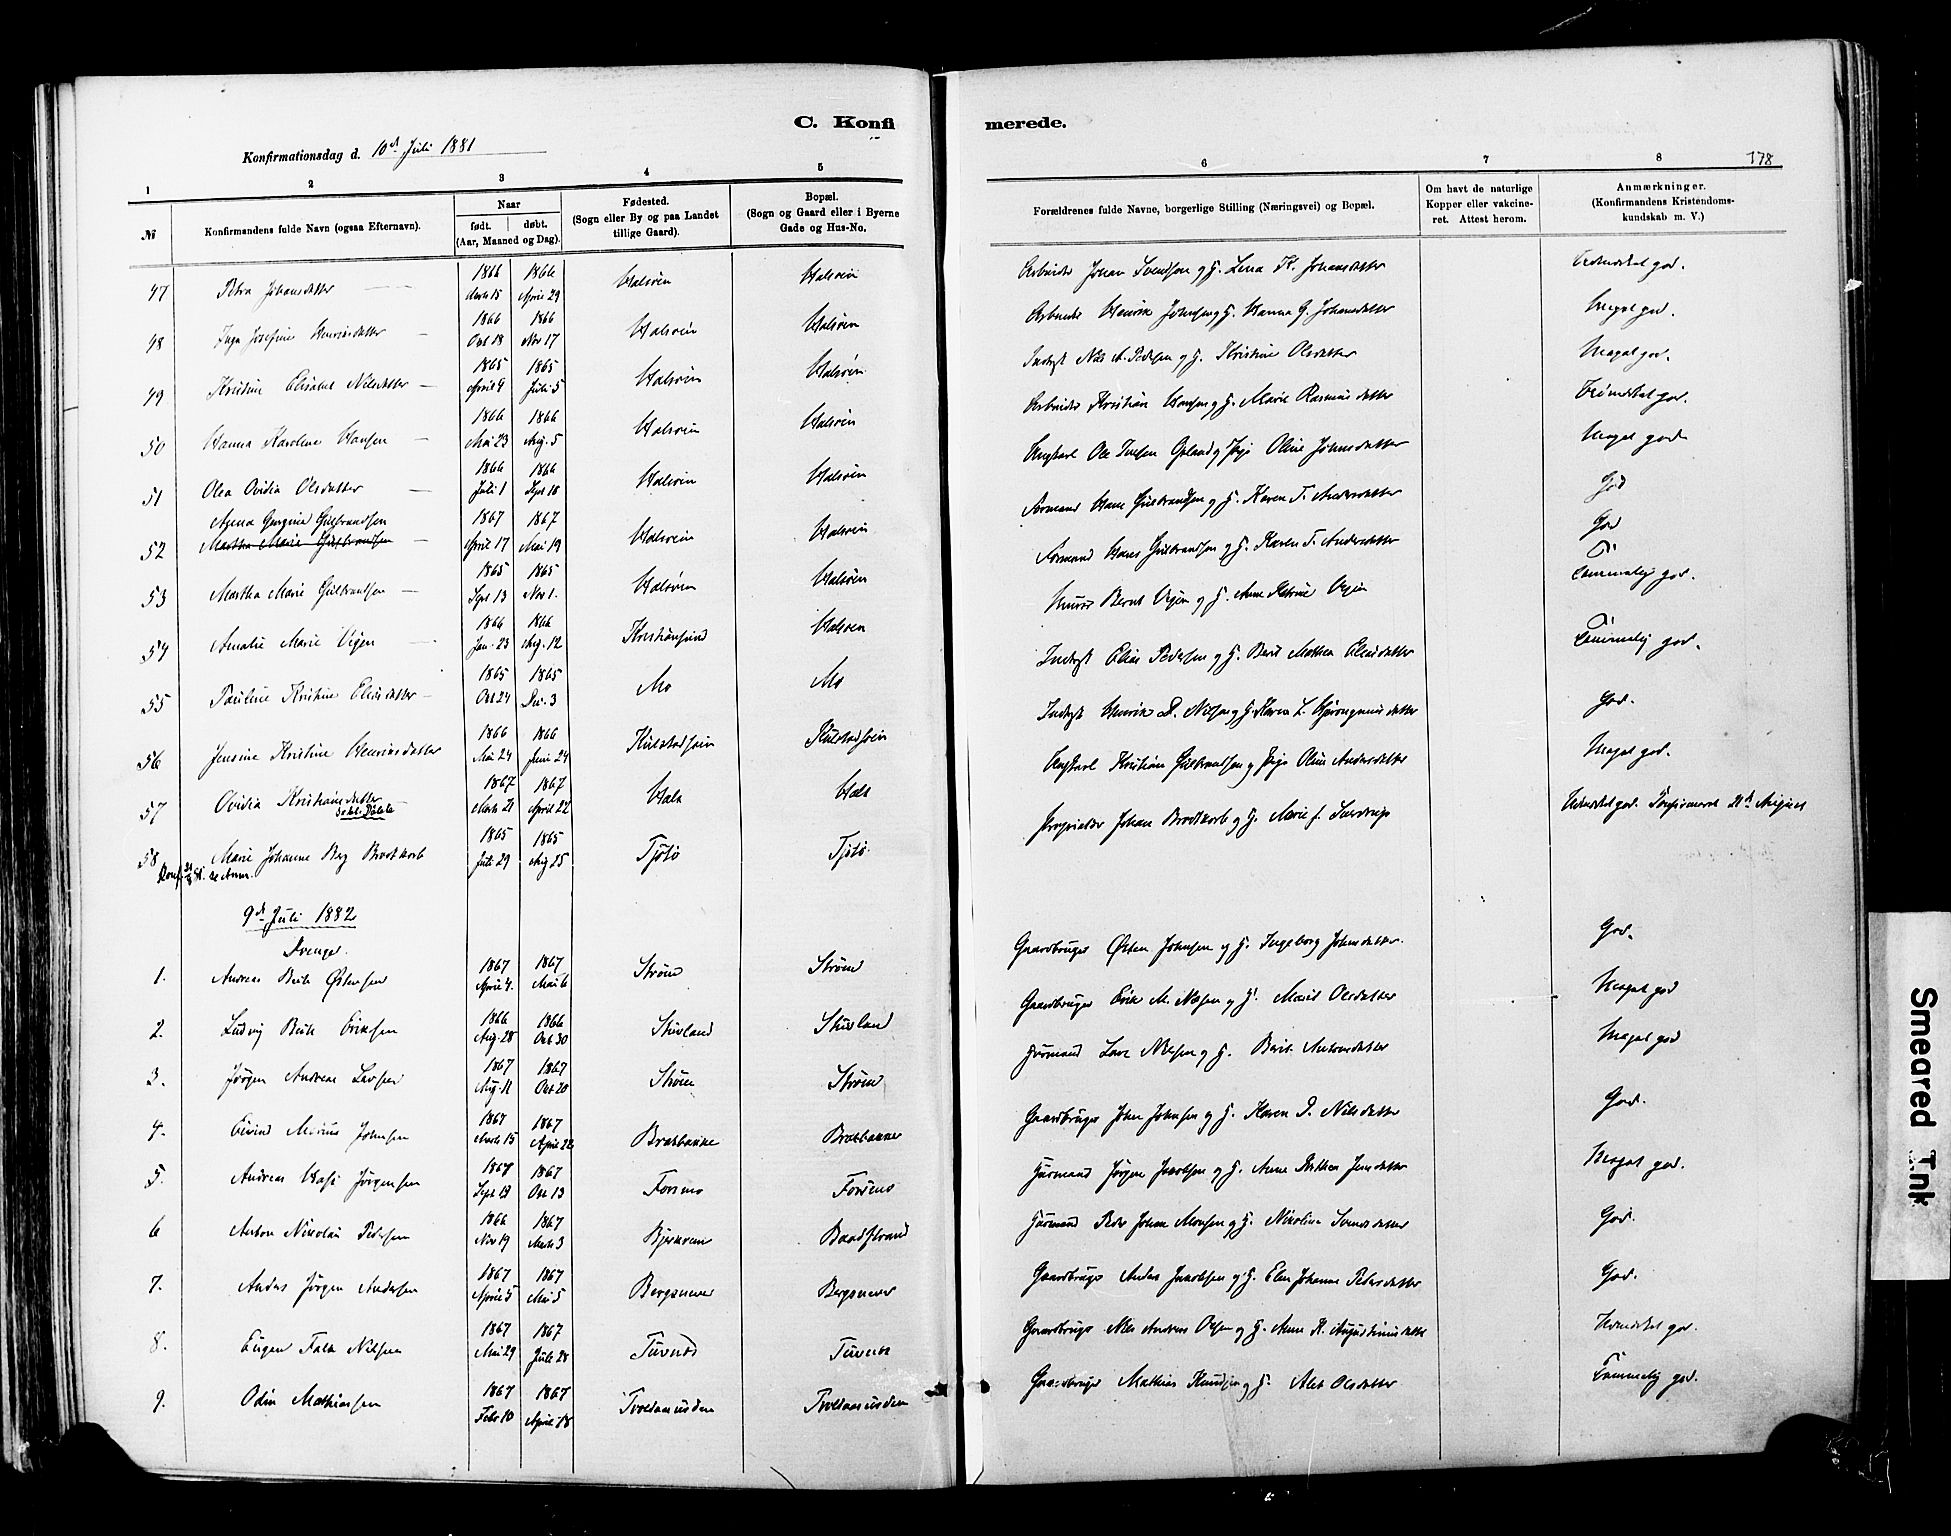 C. Konfi
merede.
Konfirmationsdag d. 10de Juli 1881
178
1 2 3 4 5 6 7 8
№
Konfirmandens fulde Navn (ogsaa Efternavn).
Naar
født. døbt.
(Aar, Maaned og Dag).
Fødested.
(Sogn eller By og paa Landet
tillige Gaard).
Bopæl.
(Sogn og Gaard eller i Byerne
Gade og Hus-No.
Forældrenes fulde Navne, borgerlige Stilling (Næringsvei) og Bopæl.
Om havt de naturlige
Kopper eller vakcine-
ret. Attest herom.
Anmærkninger.
(Konfirmandens Kristendoms-
kundskab m. V.)
47 Petra Johansdatter 1866 Marts 15 1866 April 29 Halsøen Halsøen Arbeider Johan Svendsen og H. Lena K. Johansdatter
48 Inga Josefine Henriksdatter 1866 Oct 18 1866 Nov 17 Halsøen Halsøen Arbeider Henrik Johnsen og H. Hanna G. Johansdatter Meget god.
49 Kristine Elisabet Nilsdatter 1865 April 4 1865 Juli 5 Halsøen Halsøen Inderst Nils A. Pedersen og H. Kristine Olsdatter Meget god.
50 Hanna Karoline Hansen 1866 Mai 23 1866 Aug. 5 Halsøen Halsøen Arbeider Kristian Hansen og H. Marie Rasmusdatter
51 Olea Ovidia Olsdatter 1866 Juli 1 1866 Sept 16 Halsøen Halsøen Ungkarl Ole Oline Johnsdatter Meget god
52 Agna Georgine Gulbrandsen
Martha Marie Gulbrandsen 1867 April 17 1867 Mai 19 Halsøen Halsøen Formand Hans Gulbrandsen og H. Karen T. Andersdatter God
53 Martha Marie Gulbrandsen 1865 Sept 13 1865 Nov 1. Halsøen Halsøen Formand Hans Gulbrandsen og H. Karen T. Andersdatter God
54 Amalie Marie Vigen 1866 Jan. 23 1866 Aug. 12 Kristiansund Halsøen Murer Bernt Vigen og H. Anne Petrine Vigen Temmelig god.
55 Pauline Kristine Eliasdatter 1865 Oct 24 1865 Dec. 3 Mo Mo Inderst Elias Pedersen og H. Berit Mathea Eliasdatter Temmelig god.
56 Jensine Kristine Henriksdatter 1866 Mai 24 1866 Juni 24 Kulstadsøen Kulstadsøen Inderst Henrik D. Nilsen og H. Karen L. God.
57 Ovidia Kristiansdatter 1867 Marts 21 1867 April 22 Hals Hals Ungkarl Kristian Gulbrandsen og Pige Oline Andersdatter Meget god.
58 Marie Johanne Berg Brodtkorb 1865 Juli 29 1865 Aug 25 Tjøtø Tjøtø. Proprietær Johan Brodtkorb og H. Marie f. Sverdrup Udmerket god. Konfirmeret 21de August
Konf. 21/8 81. se Anm.
9de Juli 1882
Drenge.
1. Andreas Bech Østensen 1867 April 4. 1867 Mai 6 Strøm Strøm Gaardbruger Østen Johnsen og H. Ingeborg Johnsdatter. God.
2. Ludvig Bech Eriksen 1866 Aug. 28 1866 Oct 30 Stuvland Stuvland Gaardbruger Erik M. Nilsen og H. Marit Olsdatter Meget god
3. Jørgen Andreas Larsen 1867 Aug. 11 1867 Oct 20 Strøm Strøm Husmand Lars Nilsen og H. Berit Antonsdatter Meget god
4. Eivind Marius Johnsen 1867 Marts 15 1867 April 22 Bratbakke Bratbakke Gaardbruger John Johnsen og H. Karen D. Nilsdatter God.
5. Andreas Jørgensen 1867 Sept 13 1867 Oct 13 Forsmo Forsmo Husmand Jørgen Jacobsen og H. Anne Jensdatter Meget god.
6 Anton Nikolai Pedersen 1866 Nov 19 1867 Marts 3 Baadstrand Husmand Peder Johan Monsen og H. Nikoline Svendsdatter God.
7. Anders Jørgen Andersen 1867 April 5 1867 Mai 5 Bergsnever Bergsnever Gaardbruger Anders Jacobsen og H. Elen Johanna Pedersdatter God.
8. Eugen Falk Nilsen 1867 Mai 29 1867 Juli 28 Tuvnes Tuvnes Gaardbruger Nils Andreas Olsen og H. Anne K. Augustinusdatter Udmerket god.
9. Odin Mathiassen 1867 Febr 10 1867 April 18 Gaardbruger Mathias Knudsen og H. Olsdatter Temmelig god.
Smeared Ink